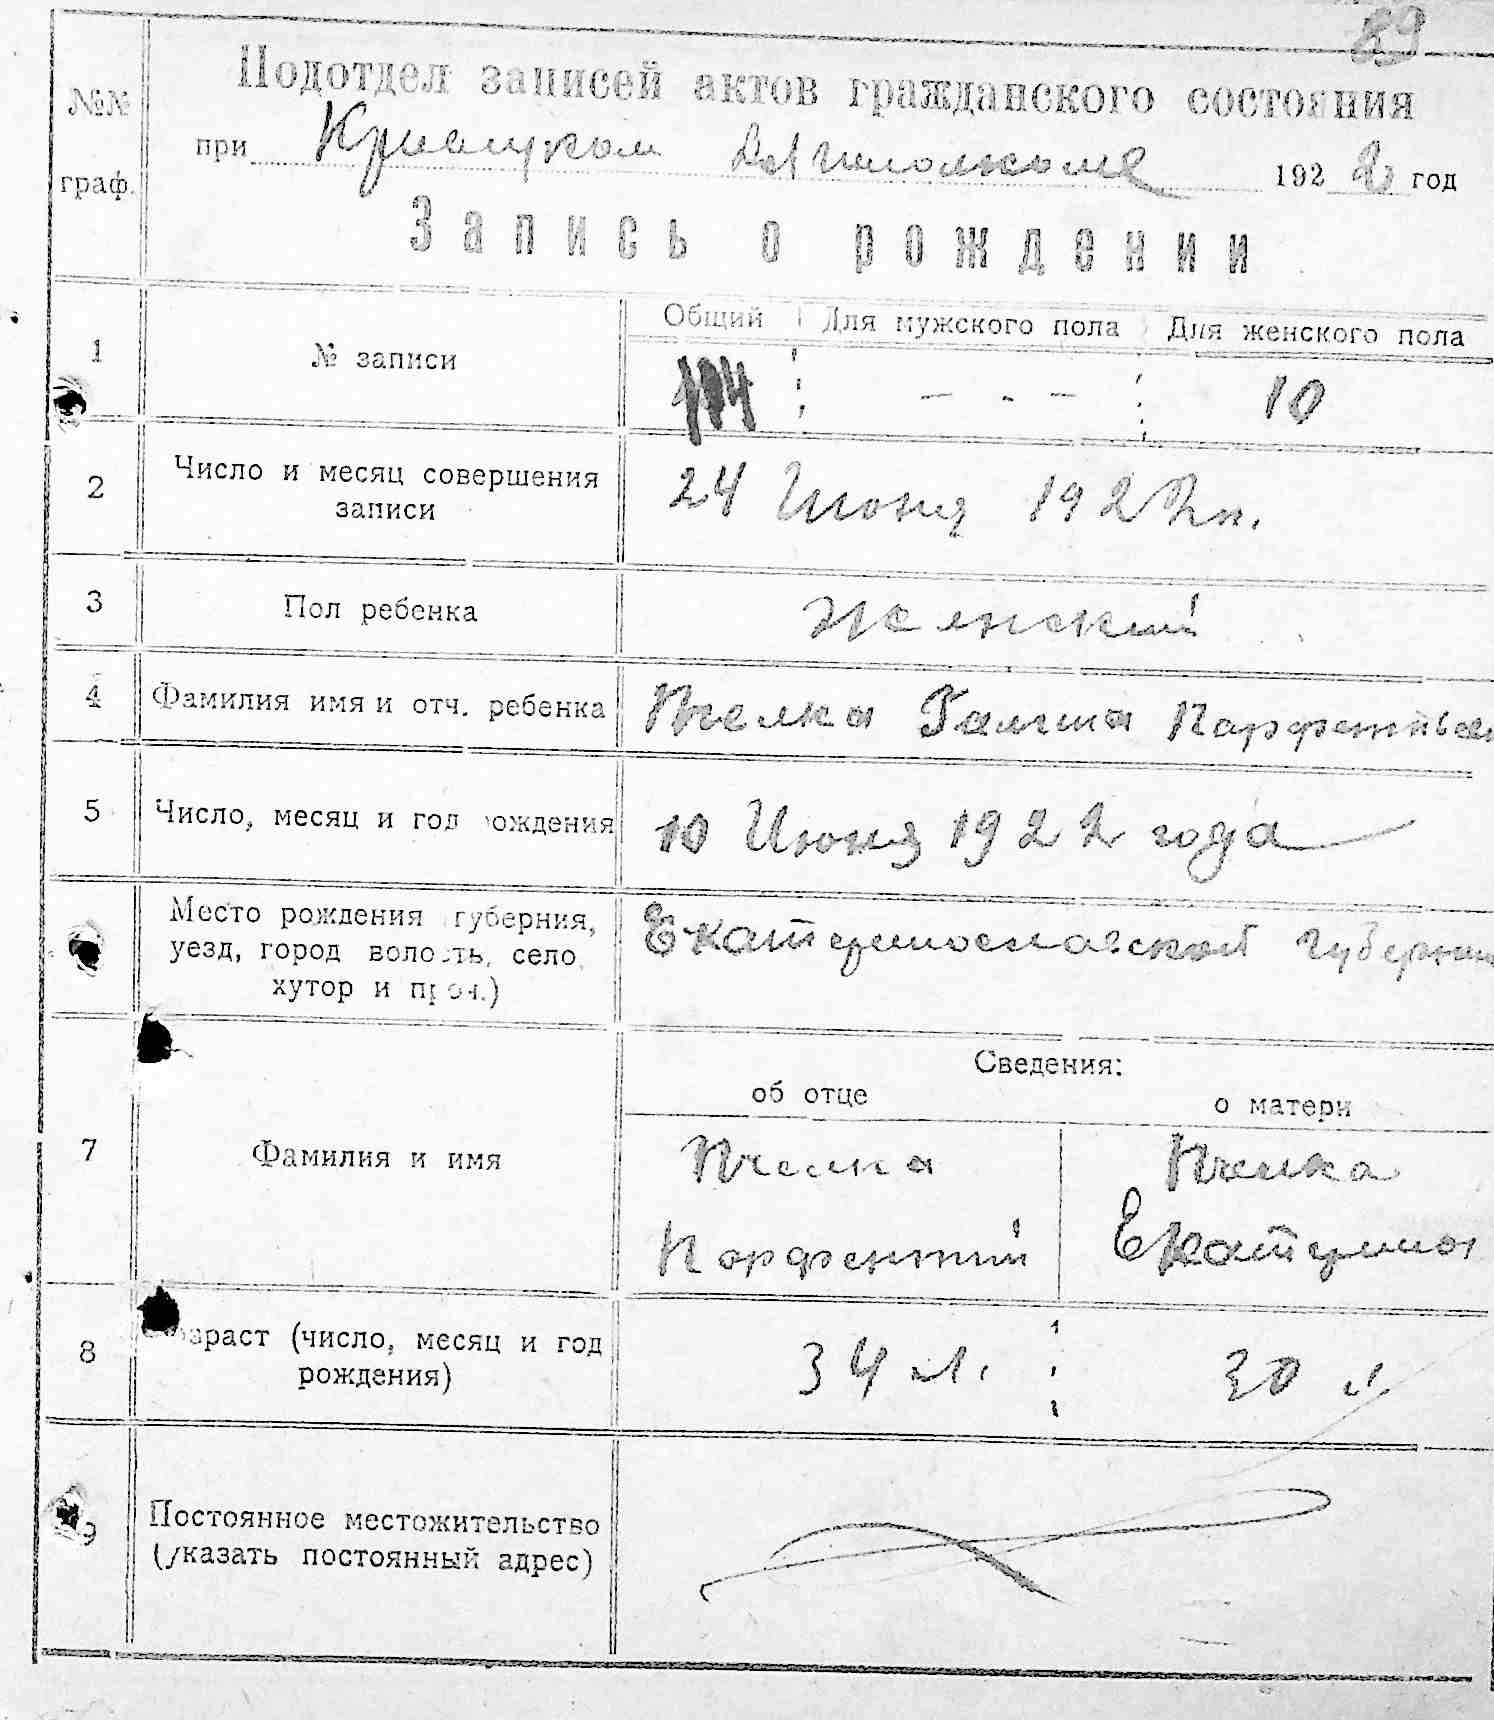 89
Подотдел записей актов гражданского состояния
№№ граф.
при 1922 год
Запись о рождении
Общий Для мужского пола Для женского пола
1 № записи - - - 10
2 Число и месяц совершения записи 24 Июня 1922
3 Пол ребенка Женский
4 Фамилия имя и отч. ребенка Пчелка Галина Парфентьев
5 Число, месяц и год рождения 10 Июня 1922 года
Место рождения губерния,
уезд, город волость, село, Екатеринославской губернии
хутор и проч.)
Сведения:
об отце о матери
7 Фамилия и имя Пчелка Пчелка
Парфентий Екатерина
8 Возраст (число, месяц и год рождения) 34 л. 30 л.
9 Постоянное местожительство
(указать постоянный адрес)